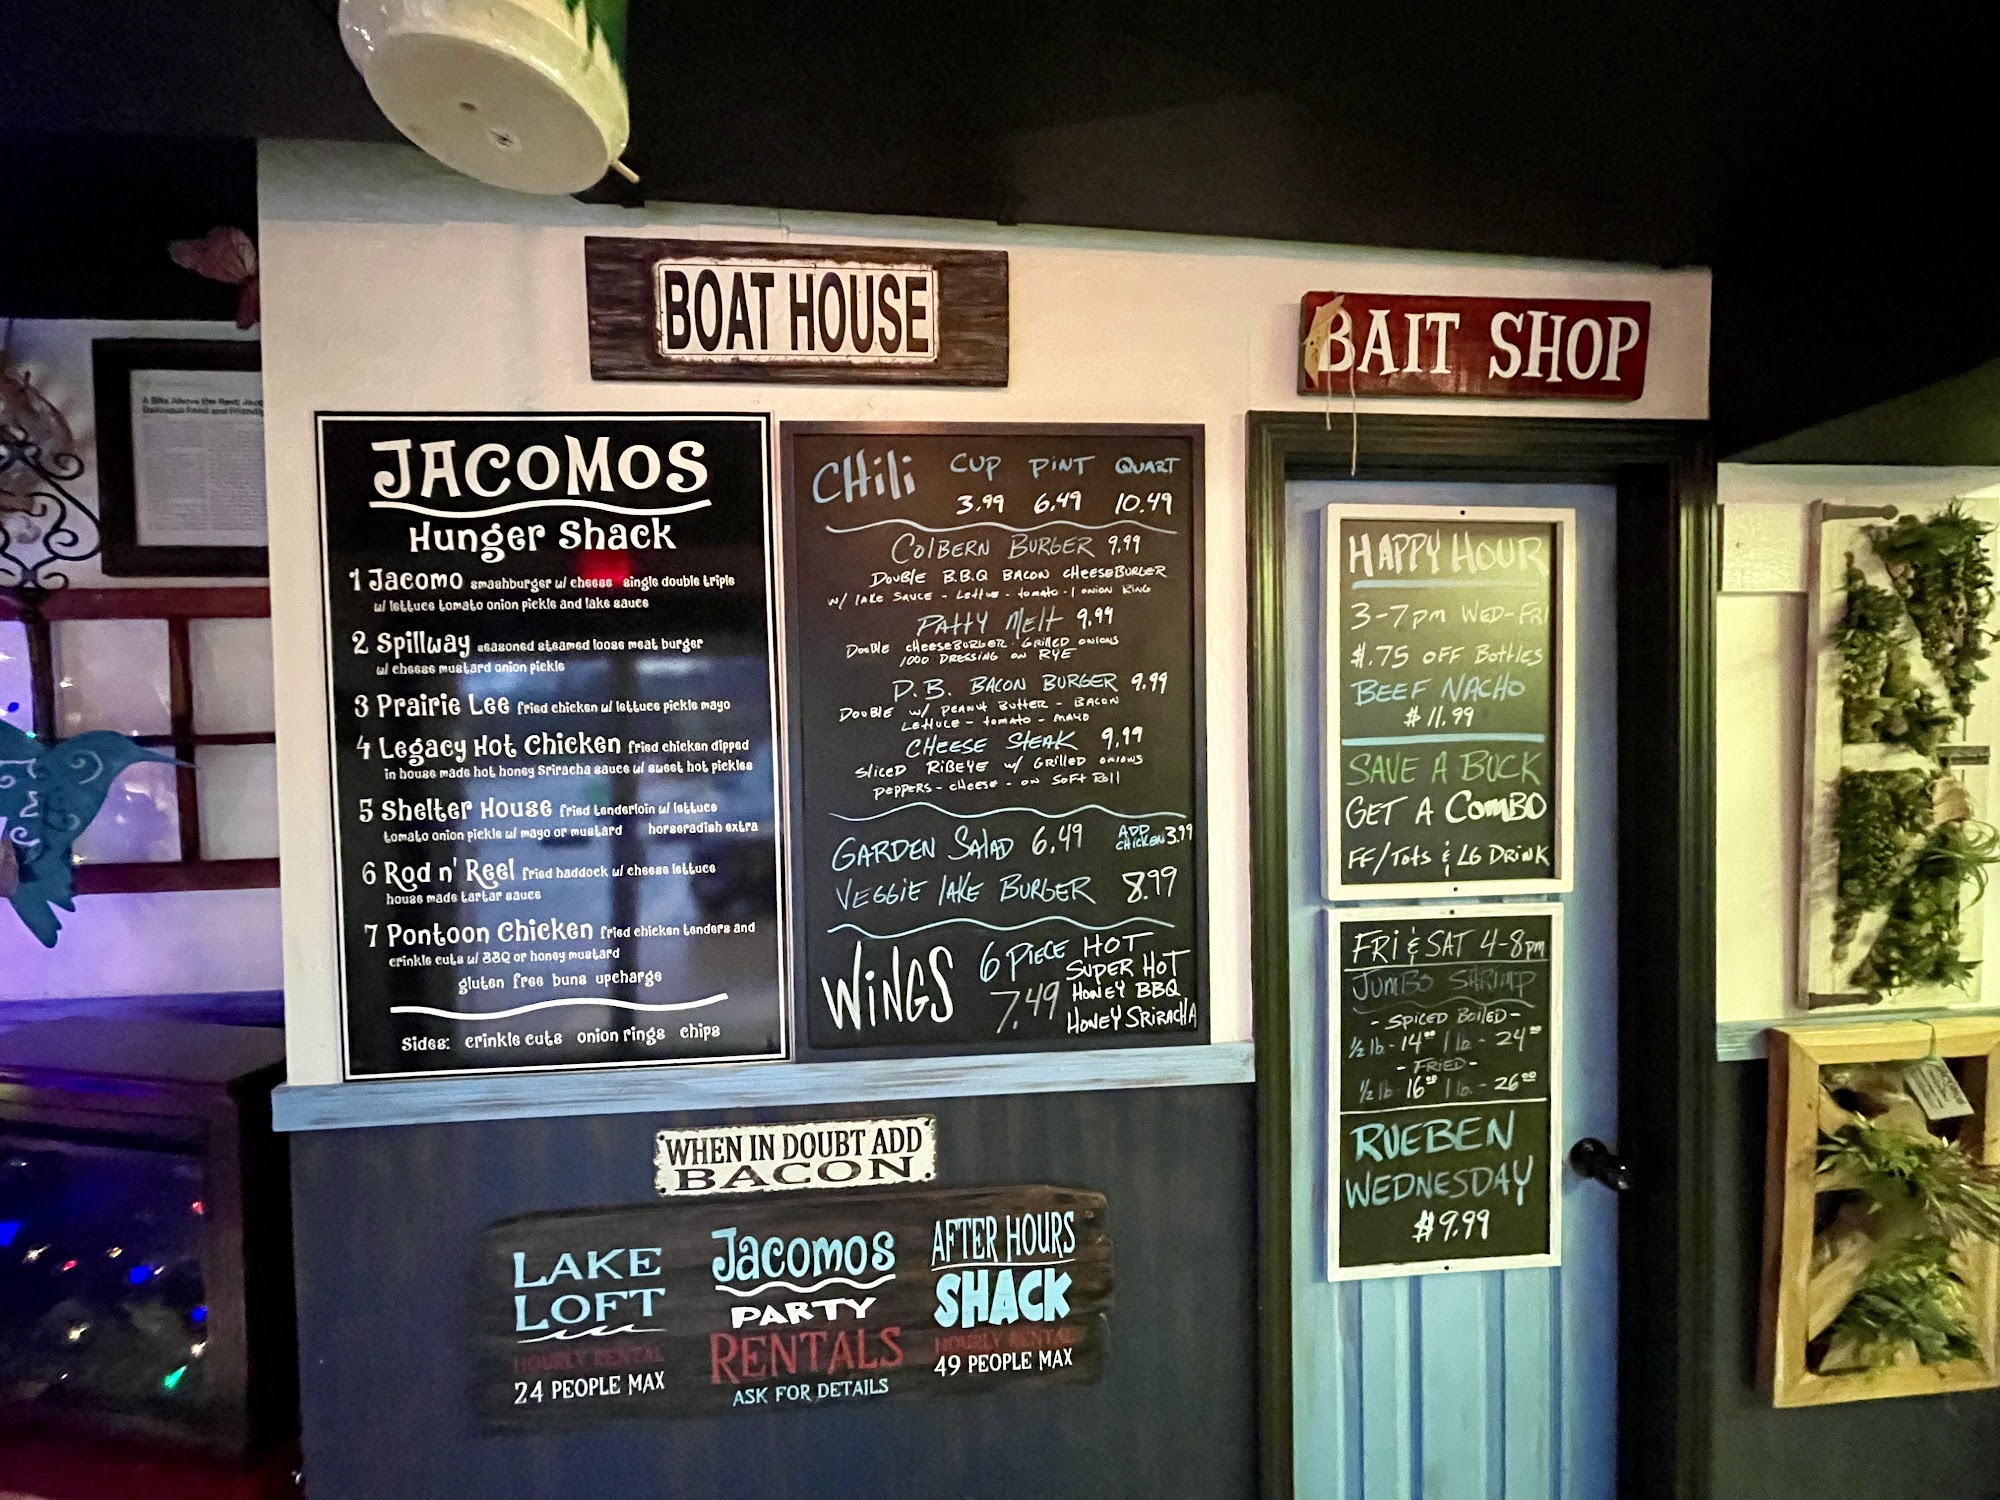 A Bite Above the Rest: Jaco
Delicious Food and Friendly
BOAT HOUSE
BAIT SHOP
JACOMOS
Hunger Shack
1 Jacomo smashburger w/ cheese single double triple
w/ lettuce tomato onion pickle and lake sauce
2 Spillway seasoned steamed loose meat burger
w/ cheese mustard onion pickle
3 Prairie Lee fried chicken w/ lettuce pickle mayo
4 Legacy Hot Chicken fried chicken dipped
in house made hot honey Sriracha sauce w/ sweet hot pickles
5 Shelter House fried tenderloin w/ lettuce
tomato onion pickle w/ mayo or mustard horseradish extra
6 Rod n' Reel fried haddock w/ cheese lettuce
house made tartar sauce
7 Pontoon Chicken fried chicken tenders and
crinkle cuts w/ BBQ or honey mustard
gluten free buns upcharge
Sides: crinkle cuts onion rings chips
CHili CUP PINT QUART
3.99 6.49 10.49
COLBERN BURGER 9.99
DOUBLE B.B.Q BACON CHEESEBURGER
W/ LAKE SAUCE - Lettuce - tomato - 1 ONION RING
PATTY MELT 9.99
DOUBLE CHEESEBURGER - GRILLED ONIONS
1000 DRESSING ON RYE
P.B. BACON BURGER 9.99
DOUBLE W/ PEANUT BUTTER - BACON
LETTUCE - tomato - MAYO
CHEESE STEAK 9.99
SLICED RIBEYE W/ GRILLED ONIONS
PEPPERS - CHEESE - ON SOFT Roll
GARDEN SALAD 6.49 ADD CHICKEN 3.99
VEGGIE LAKE BURGER 8.99
WINGS 6 PIECE 7.49
HOT
SUPER HOT
HONEY BBQ
HONEY SRIRACHA
HAPPY HOUR
3-7pm WED-FRI
$.75 OFF BOTTLES
BEEF NACHO
$11.99
SAVE A BUCK
GET A COMBO
FF/Tots & LG DRINK
FRI & SAT 4-8pm
JUMBO SHRIMP
- SPICED BOILED -
1/2 lb - 14.00 1 lb - 24.00
- FRIED -
1/2 lb - 16.00 1 lb. - 26.00
RUEBEN
WEDNESDAY
$9.99
WHEN IN DOUBT ADD
BACON
LAKE
LOFT
HOURLY RENTAL
24 PEOPLE MAX
Jacomos
PARTY
RENTALS
ASK FOR DETAILS
AFTER HOURS
SHACK
HOURLY RENTAL
49 PEOPLE MAX